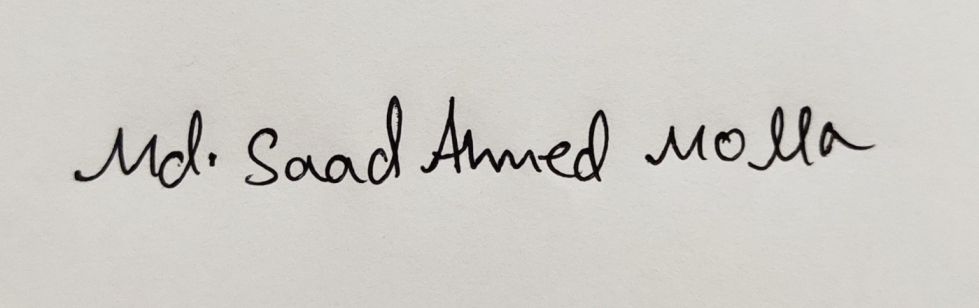 Md. Saad Ahmed Molla